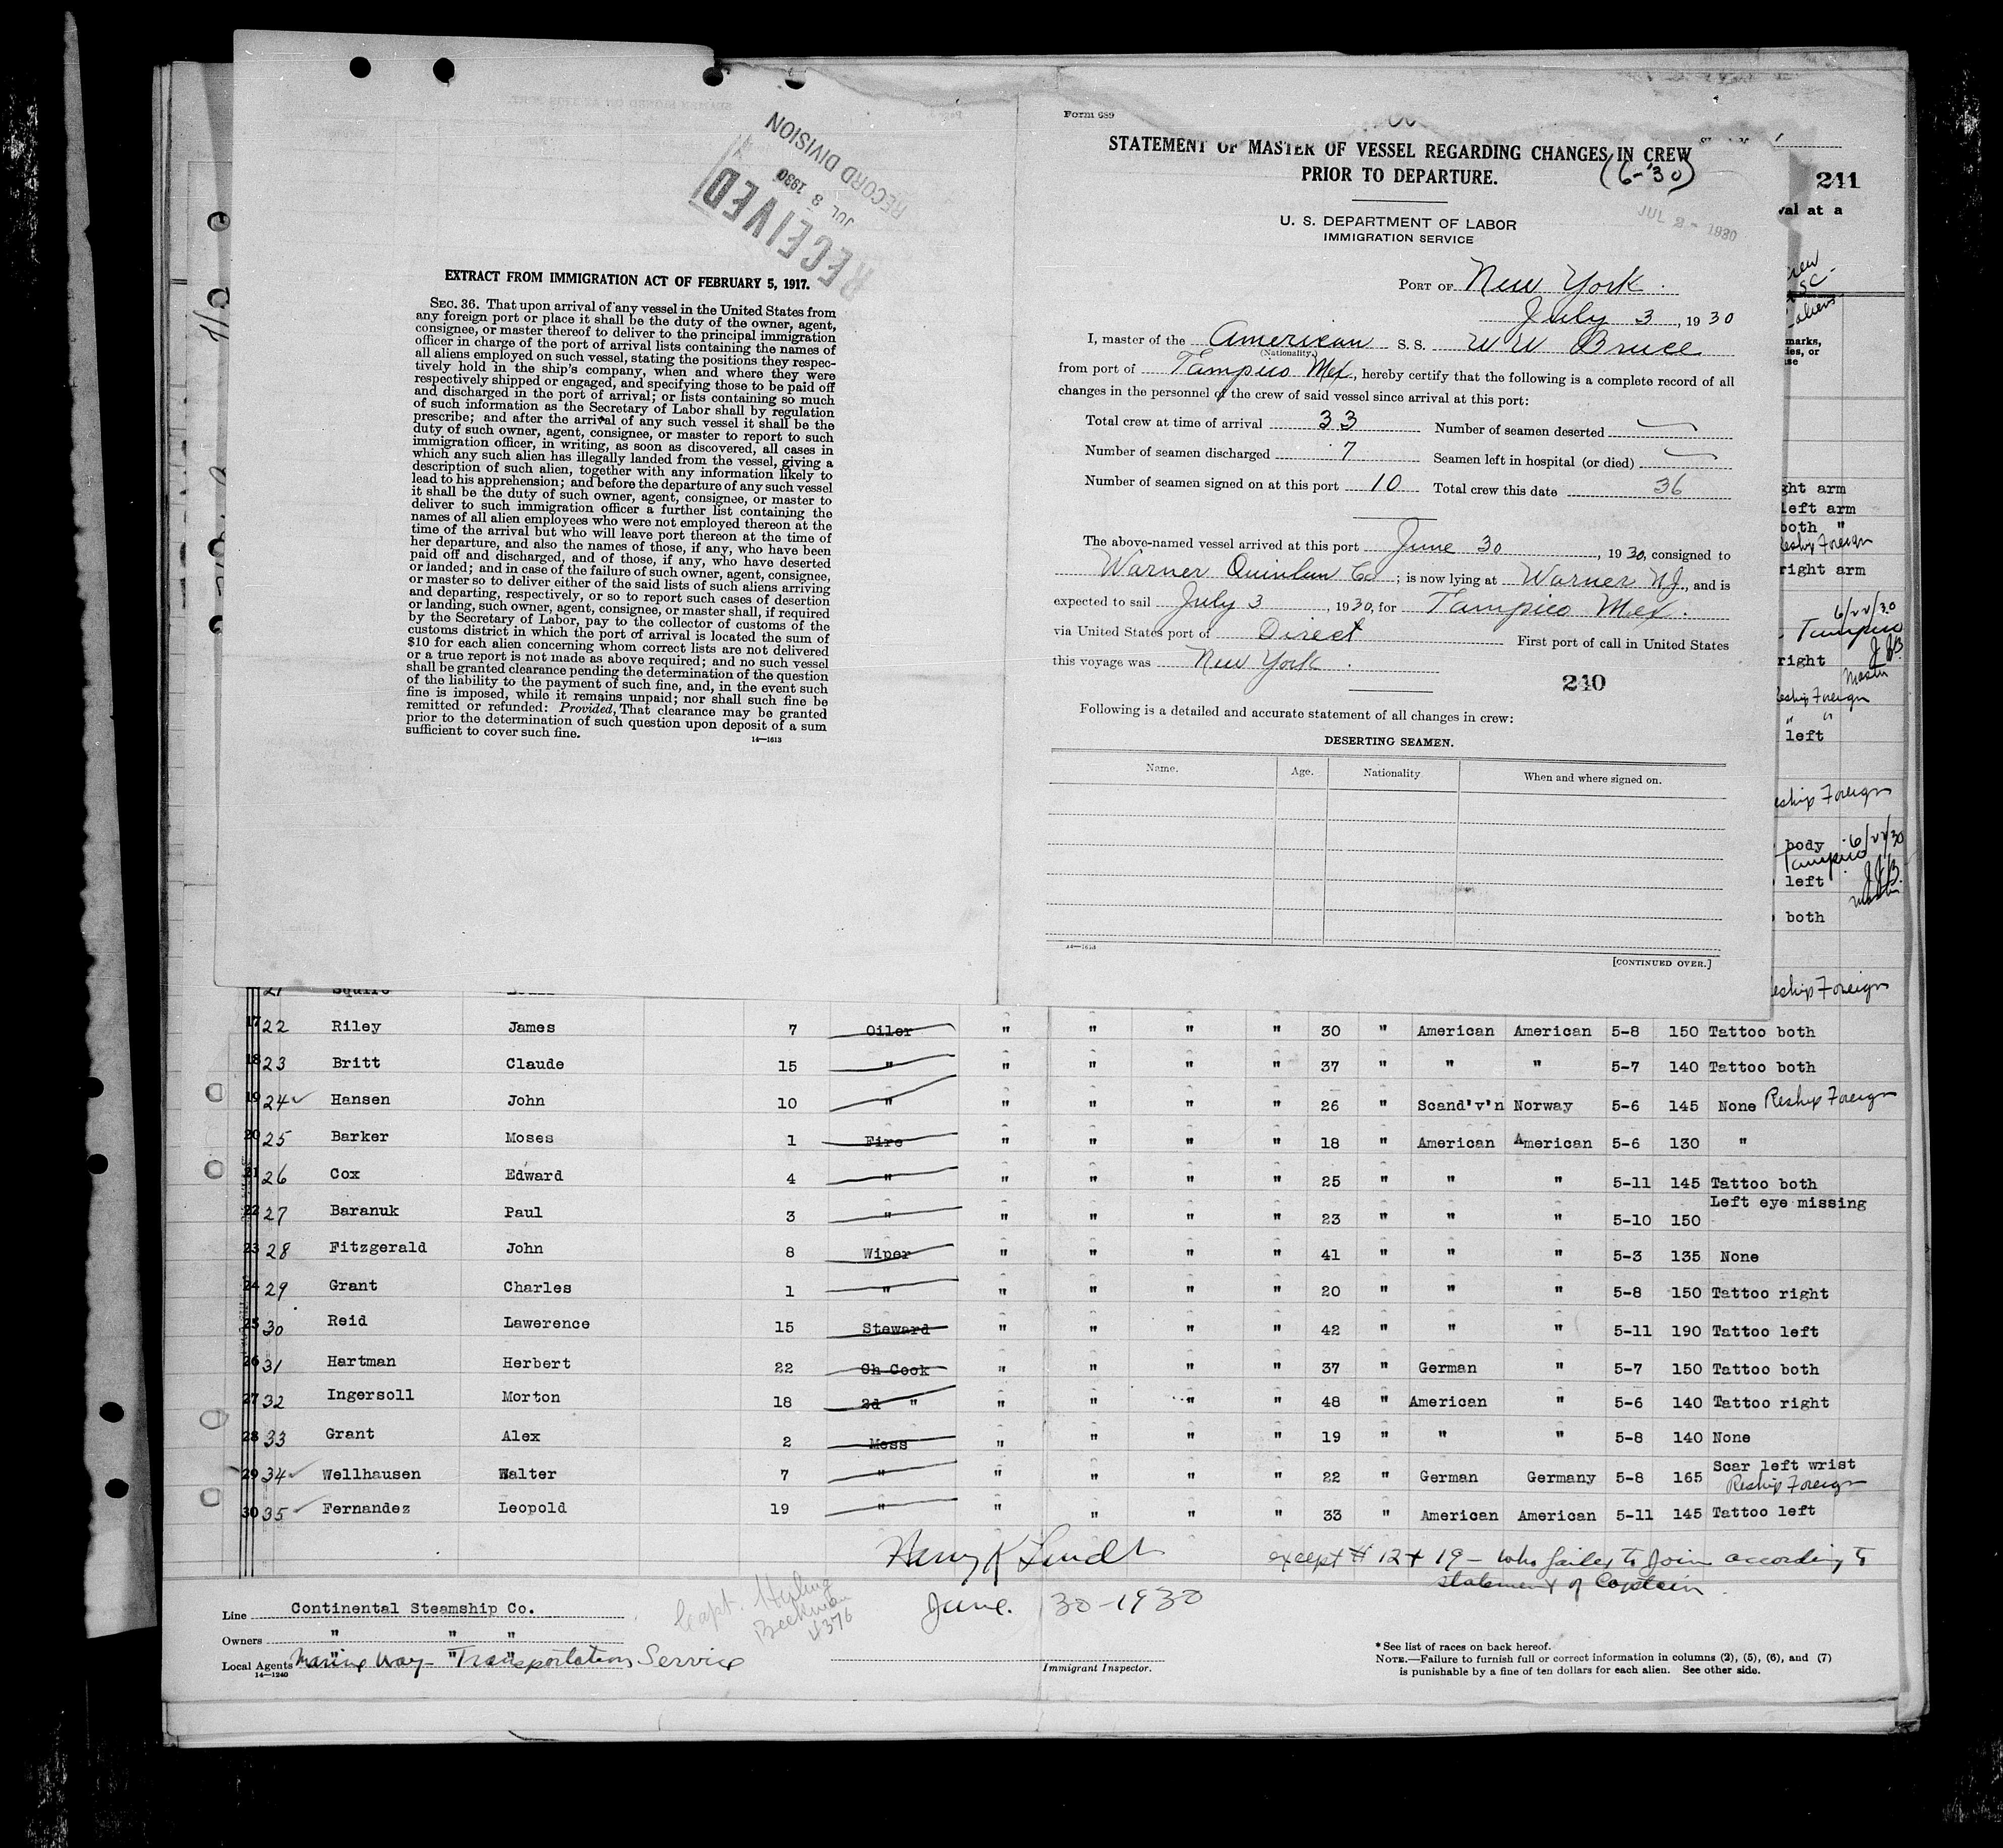 RECEIVED
JUL 8 1930
RECORD DIVISION
EXTRACT FROM IMMIGRATION ACT OF FEBRUARY 5, 1917.
SEC. 36. That upon arrival of any vessel in the United States from
any foreign port or place it shall be the duty of the owner, agent,
consignee, or master thereof to deliver to the principal immigration
officer in charge of the port of arrival lists containing the names of
all aliens employed on such vessel, stating the positions they respec-
tively hold in the ship's company, when and where they were
respectively shipped or engaged, and specifying those to be paid off
and discharged in the port of arrival; or lists containing so much
of such information as the Secretary of Labor shall by regulation
prescribe; and after the arrival of any such vessel it shall be the
duty of such owner, agent, consignee, or master to report to such
immigration officer, in writing, as soon as discovered, all cases in
which any such alien has illegally landed from the vessel, giving a
description of such alien, together with any information likely to
lead to his apprehension; and before the departure of any such vessel
it shall be the duty of such owner, agent, consignee, or master to
deliver to such immigration officer a further list containing the
names of all alien employees who were not employed thereon at the
time of the arrival but who will leave port thereon at the time of
her departure, and also the names of those, if any, who have been
paid off and discharged, and of those, if any, who have deserted
or landed; and in case of the failure of such owner, agent, consignee,
or master so to deliver either of the said lists of such aliens arriving
and departing, respectively, or so to report such cases of desertion
or landing, such owner, agent, consignee, or master shall, if required
by the Secretary of Labor, pay to the collector of customs of the
customs district in which the port of arrival is located the sum of
$10 for each alien concerning whom correct lists are not delivered
or a true report is not made as above required; and no such vessel
shall be granted clearance pending the determination of the question
of the liability to the payment of such fine, and, in the event such
fine is imposed, while it remains unpaid; nor shall such fine be
remitted or refunded: Provided, That clearance may be granted
prior to the determination of such question upon deposit of a sum
sufficient to cover such fine.
14—1613
Form 689
STATEMENT OF MASTER OF VESSEL REGARDING CHANGES IN CREW
PRIOR TO DEPARTURE. (6-'30)
U. S. DEPARTMENT OF LABOR
IMMIGRATION SERVICE
JUL 2 - 1930
PORT OF New York.
July 3, 1930
I, master of the American S. S. W W Bruce
(Nationality.)
from port of Tampico Mex, hereby certify that the following is a complete record of all
changes in the personnel of the crew of said vessel since arrival at this port:
Total crew at time of arrival 33 Number of seamen deserted
Number of seamen discharged 7 Seamen left in hospital (or died)
Number of seamen signed on at this port 10 Total crew this date 36
The above-named vessel arrived at this port June 30, 1930, consigned to
Warner Quinlan Co; is now lying at Warner NJ., and is
expected to sail July 3, 1930, for Tampico Mex.
via United States port of Direct First port of call in United States
this voyage was New York.
240
Following is a detailed and accurate statement of all changes in crew:
DESERTING SEAMEN.
Name. Age. Nationality When and where signed on.
14—1613
[CONTINUED OVER.]
241
val at a
marks,
ies, or
ght arm
left arm
both "
Reship Foreign
right arm
6/22/30
Tampico
JJB
right
Master
Reship Foreign
" "
left
Reship Foreign
body 6/22/30
Tampico
left JJB
Master
both
Reship Foreign
21 Squire
17 22 Riley James 7 Oiler " " " " 30 " American American 5-8 150 Tattoo both
18 23 Britt Claude 15 " " " " " 37 " " " 5-7 140 Tattoo both
19 24 Hansen John 10 " " " " " 26 " Scand'v'n Norway 5-6 145 None Reship Foreign
20 25 Barker Moses 1 Fire " " " " 18 " American American 5-6 130 "
21 26 Cox Edward 4 " " " " " 25 " " " 5-11 145 Tattoo both
22 27 Baranuk Paul 3 " " " " " 23 " " " 5-10 150 Left eye missing
23 28 Fitzgerald John 8 Wiper " " " " 41 " " " 5-3 135 None
24 29 Grant Charles 1 " " " " " 20 " " " 5-8 150 Tattoo right
25 30 Reid Lawerence 15 Steward " " " " 42 " " " 5-11 190 Tattoo left
26 31 Hartman Herbert 22 Ch Cook " " " " 37 " German " 5-7 150 Tattoo both
27 32 Ingersoll Morton 18 2d " " " " " 48 " American " 5-6 140 Tattoo right
28 33 Grant Alex 2 Mess " " " " 19 " " " 5-8 140 None
29 34 Wellhausen Walter 7 " " " " " 22 " German Germany 5-8 165 Scar left wrist
Reship Foreign
30 35 Fernandez Leopold 19 " " " " " 33 " American American 5-11 145 Tattoo left
except # 12 + 19 - who failed to join according to
statement of Captain.
June 30-1930
Line Continental Steamship Co.
Owners " " "
Local Agents Marine Way Transportation Service
14—1240
Capt.
Beekman
4376
Immigrant Inspector.
* See list of races on back hereof.
NOTE.—Failure to furnish full or correct information in columns (2), (5), (6), and (7)
is punishable by a fine of ten dollars for each alien. See other side.